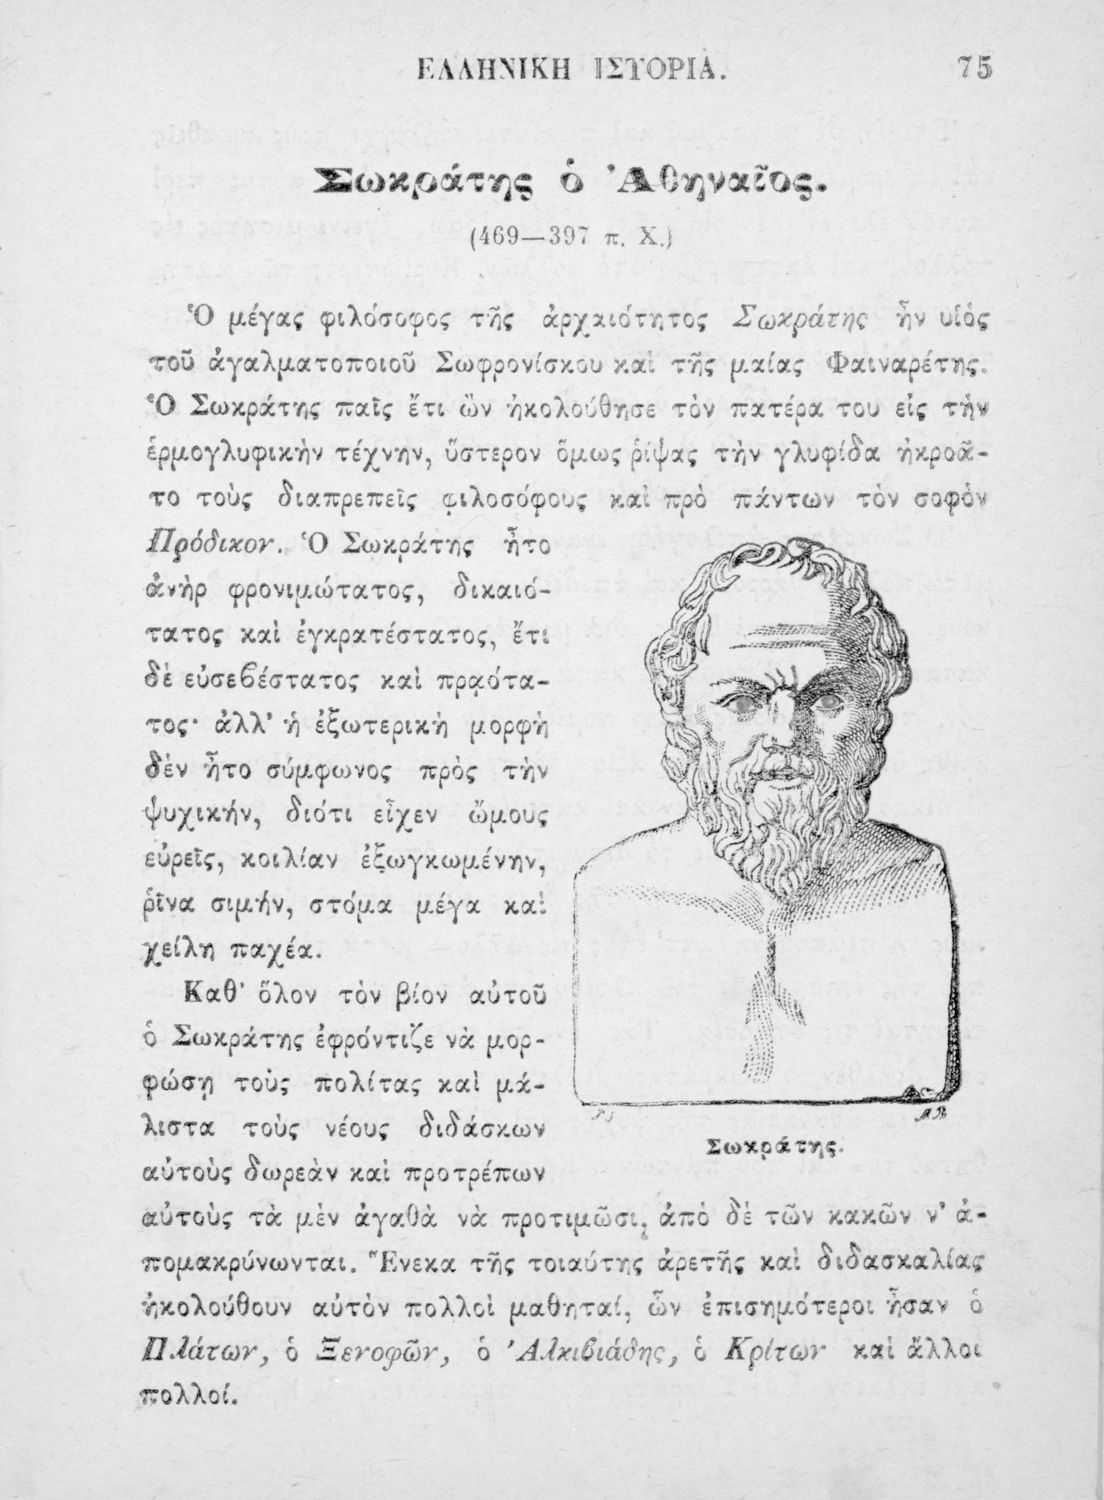 ΕΛΛΗΝΙΚΗ ΙΣΤΟΡΙΑ. 75
Σωκράτης ὁ Ἀθηναῖος.
(469—397 π. Χ.)
Ὁ μέγας φιλόσοφος τῆς ἀρχαιότητος Σωκράτης ἦν υἱὸς
τοῦ ἀγαλματοποιοῦ Σωφρονίσκου καὶ τῆς μαίας Φαιναρέτης.
Ὁ Σωκράτης παῖς ἔτι ὢν ἠκολούθησε τὸν πατέρα του εἰς τὴν
ἑρμογλυφικὴν τέχνην, ὕστερον ὅμως ῥίψας τὴν γλυφίδα ἠκροᾶ-
το τοὺς διαπρεπεῖς φιλοσόφους καὶ πρὸ πάντων τὸν σοφὸν
Πρόδικον. Ὁ Σωκράτης ἦτο
ἀνὴρ φρονιμώτατος, δικαιό-
τατος καὶ ἐγκρατέστατος, ἔτι
δὲ εὐσεβέστατος καὶ πραότα-
τος· ἀλλ' ἡ ἐξωτερικὴ μορφὴ
δὲν ἦτο σύμφωνος πρὸς τὴν
ψυχικήν, διότι εἶχεν ὤμους
εὐρεῖς, κοιλίαν ἐξωγκωμένην,
ῥῖνα σιμήν, στόμα μέγα καὶ
χείλη παχέα.
Καθ' ὅλον τὸν βίον αὑτοῦ
ὁ Σωκράτης ἐφρόντιζε νὰ μορ-
φώσῃ τοὺς πολίτας καὶ μά-
λιστα τοὺς νέους διδάσκων
αὐτοὺς δωρεὰν καὶ προτρέπων
αὐτοὺς τὰ μὲν ἀγαθὰ νὰ προτιμῶσι, ἀπὸ δὲ τῶν κακῶν ν' ἀ-
πομακρύνωνται. Ἕνεκα τῆς τοιαύτης ἀρετῆς καὶ διδασκαλίας
ἠκολούθουν αὐτὸν πολλοὶ μαθηταί, ὧν ἐπισημότεροι ἦσαν ὁ
Πλάτων, ὁ Ξενοφῶν, ὁ Ἀλκιβιάδης, ὁ Κρίτων καὶ ἄλλοι
πολλοί.
Σωκράτης.